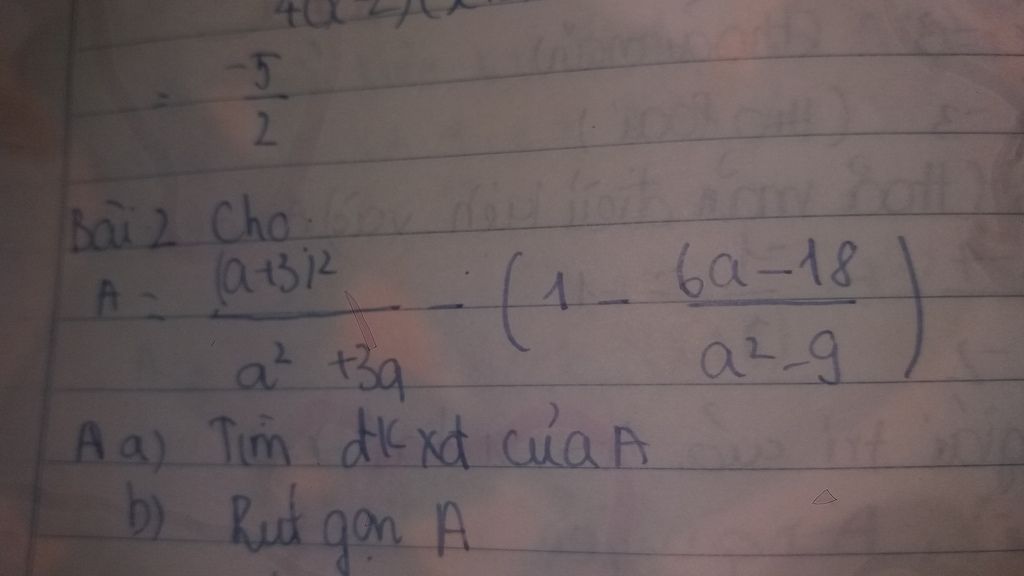 = -5/2
Bài 2 Cho
A = (a+3)²/(a² +3a) - (1 - (6a-18)/(a²-9))
A a) Tìm đkxđ của A
b) Rut gọn A